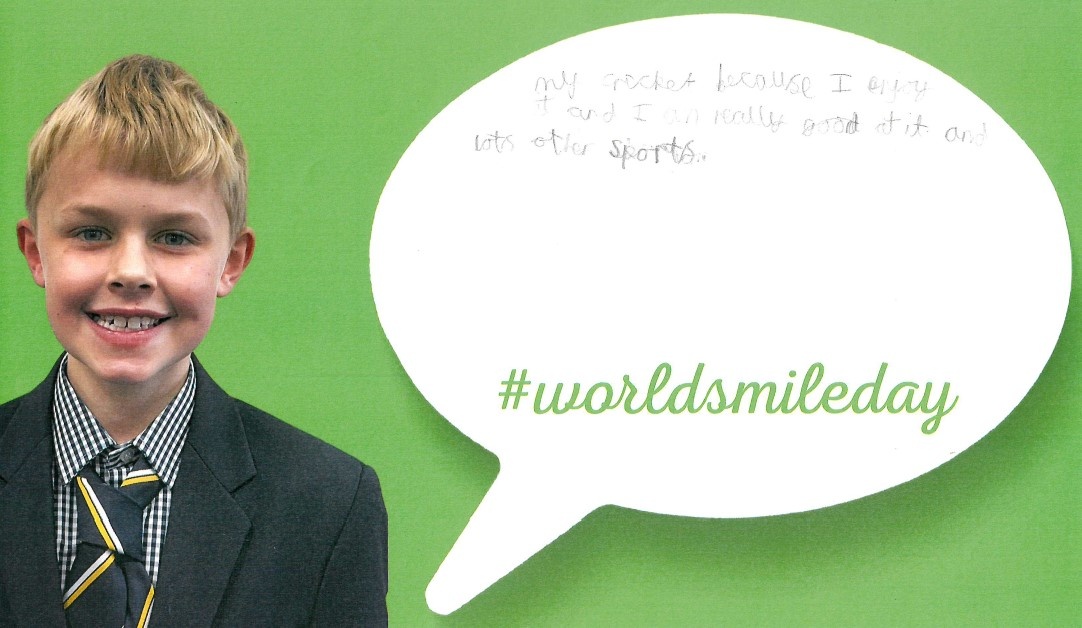 my cricket because I enjoy
it and I am really good at it and
lots other sports.
#worldsmileday